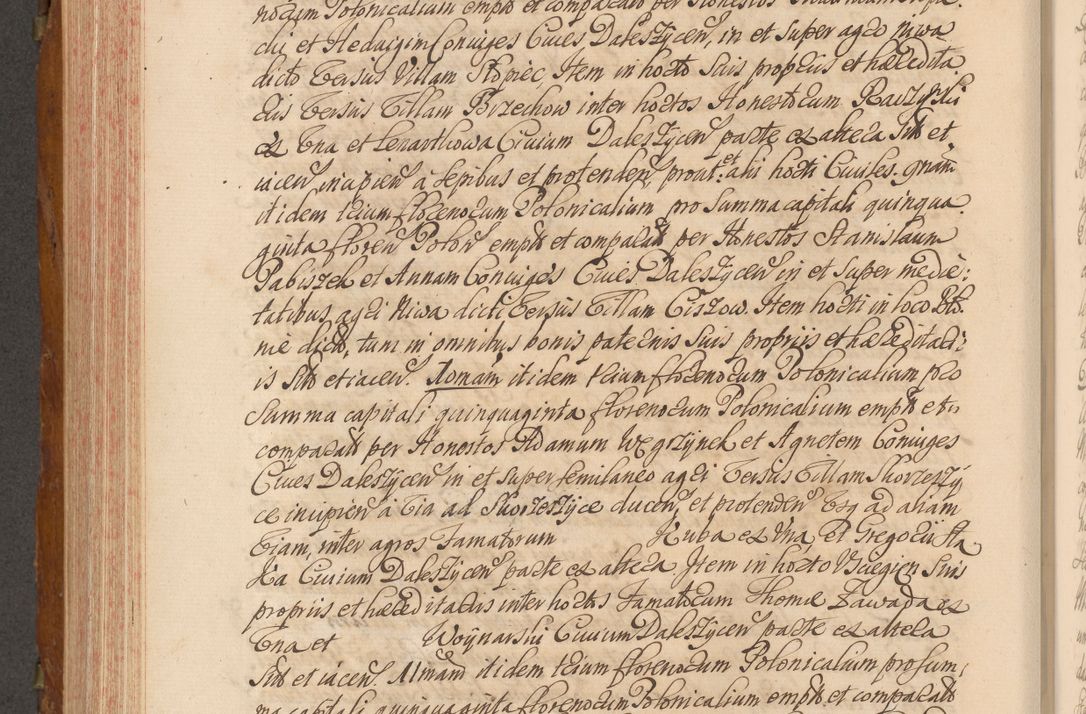 nocum Polonicalium empt et comparat per Honestos
chi et Hedvigim Coniuges Cives Daleszycen, in et super agro Niwa
dicto versus Villam Słopiec, Item in horto suis propriis et hæredita
riis versus Villam Brzechow inter hortos Honestorum Raczyński
ex Una et Lenarthowa Civium Daleszycen parte ex altera sit et
iacen incipien à sepibus et protenden, prout et alii horti Civiles. 9nam
itidem trium florenorum Polonicalium pro Summa capitali quinqua
ginta floren Polon empt et comparat per Honestos Stanislaum
Pabiszek et Annam Coniuges Cives Daleszycen in et super medie:
tatibus agri Niwa dicti versus Villam Ciszow. Item horti in loco
nie dicto, tum in omnibus bonis paternis suis propriis et hæreditari:
is sit et iacen. 10mam itidem trium florenorum Polonicalium pro
Summa capitali quinquaginta florenorum Polonicalium empt et
comparat per Honestos Adamum Węgrzynek et Agnetem Coniuges
Cives Daleszycen in et super semilaneo agri versus Villam Skorzeszy
ce incipien à Via ad Skorzeszyce ducen, et protenden Usq ad aliam
Viam, inter agros Famatorum Kuba ex Una, Et Gregorii
Ka Civium Daleszycen parte ex altera Item in horto Vaegien suis
propriis et hæreditariis inter hortos Famatorum Thomæ Zawada ex
Una et Woynarski Civium Daleszycen parte ex altera
sit et iacen. 11mam itidem trium florenorum Polonicalium pro sum:
ma capitali quinquaginta florenorum Polonicalium empt et comparat